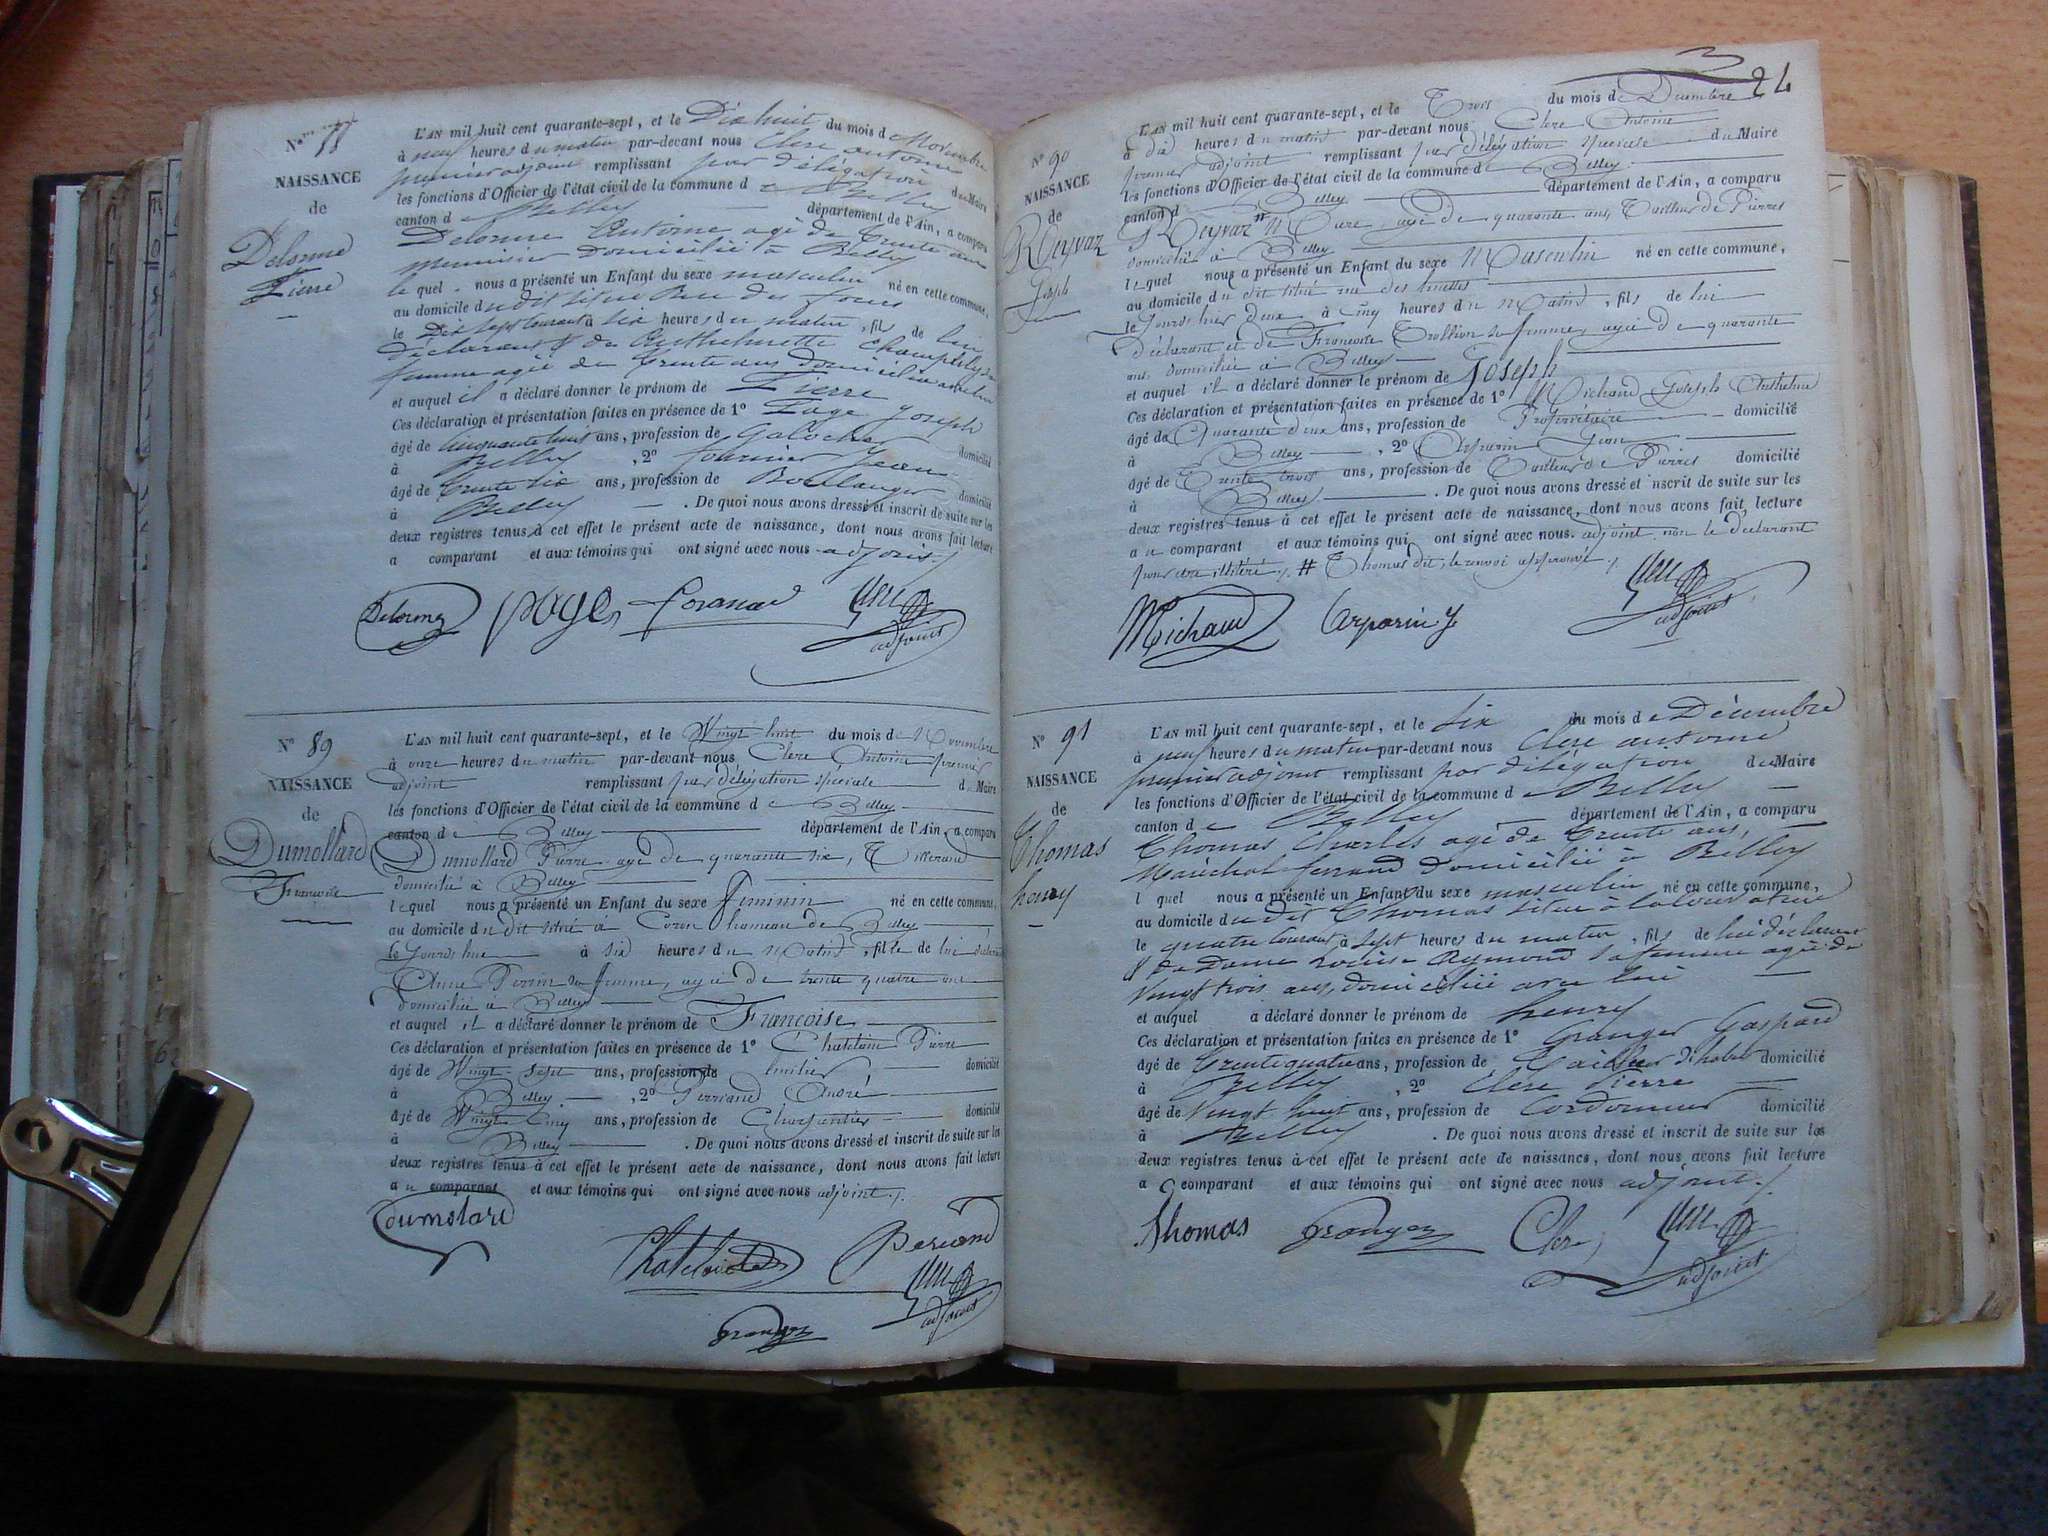 N° 88
NAISSANCE
de
Delorme
Pierre
L'AN mil huit cent quarante-sept, et le Dix huit du mois de Novembre
à neuf heures du matin par-devant nous Clerc antoine
premier adjoint remplissant par délégation du Maire
les fonctions d'Officier de l'état civil de la commune de Belley
canton de Belley département de l'Ain, a comparu
Delorme Antoine agé de Trente ans
meunier domicilié à Belley
lequel nous a présenté un Enfant du sexe masculin né en cette commune,
au domicile du dit situé Rue des fours
le Dix sept courant à six heures du matin, fils de lui
déclarant & de Anthelmette
femme agée de Trente ans domiciliée avec lui
et auquel il a déclaré donner le prénom de Pierre
Ces déclaration et présentation faites en présence de 1° Page Joseph
âgé de Cinquante huit ans, profession de Galocher domicilié
à Belley, 2° Jean
âgé de trente six ans, profession de Boulanger domicilié
à Belley. De quoi nous avons dressé et inscrit de suite sur les
deux registres tenus à cet effet le présent acte de naissance, dont nous avons fait lecture
a comparant et aux témoins qui ont signé avec nous adjoint./.
Delorme Page adjoint
N° 89
NAISSANCE
de
Dumollard
Françoise
L'AN mil huit cent quarante-sept, et le Vingt huit du mois de Novembre
à onze heures du matin par-devant nous Clerc Antoine premier
adjoint remplissant par délégation spéciale du Maire
les fonctions d'Officier de l'état civil de la commune de Belley
canton de Belley département de l'Ain, a comparu
Dumollard Pierre agé de quarante six, Tisserand
domicilié à Belley
lequel nous a présenté un Enfant du sexe féminin né en cette commune,
au domicile du dit situé à Coron hameau de Belley
le jourd'hui à six heures du matin, fille de lui
Anne Perrin sa femme, agée de trente quatre ans
domiciliée à Belley
et auquel il a déclaré donner le prénom de Françoise
Ces déclaration et présentation faites en présence de 1° Chatelain Pierre
âgé de Vingt-sept ans, profession de domicilié
à Belley, 2° Ferriand André
âgé de Vingt Cinq ans, profession de Charpentier domicilié
à Belley. De quoi nous avons dressé et inscrit de suite sur les
deux registres tenus à cet effet le présent acte de naissance, dont nous avons fait lecture
au comparant et aux témoins qui ont signé avec nous adjoint./.
Dumolard
adjoint
24
N° 90
NAISSANCE
de
Reyvaz
Joseph
L'AN mil huit cent quarante-sept, et le Trois du mois de Décembre
à dix heures du matin par-devant nous Clerc Antoine
premier adjoint remplissant par délégation spéciale du Maire
les fonctions d'Officier de l'état civil de la commune de Belley
canton de Belley département de l'Ain, a comparu
Reyvaz # agé de quarante ans Tailleur de Pierres
domicilié à Belley
lequel nous a présenté un Enfant du sexe Masculin né en cette commune,
au domicile du dit situé rue des
le jourd'hier deux à cinq heures du Matin, fils de lui
déclarant et de Françoise Trollion sa femme, agée de quarante
ans domiciliée à Belley
et auquel il a déclaré donner le prénom de Joseph
Ces déclaration et présentation faites en présence de 1° Michaud Joseph Anthelme
âgé de Quarante deux ans, profession de Propriétaire domicilié
à Belley, 2° Carparin Jean
âgé de Trente trois ans, profession de Tailleur de Pierres domicilié
à Belley. De quoi nous avons dressé et inscrit de suite sur les
deux registres tenus à cet effet le présent acte de naissance, dont nous avons fait lecture
au comparant et aux témoins qui ont signé avec nous adjoint non le déclarant
pour être illitéré./. # Thomas dit, le renvoi approuvé./.
Michaud Carparin J
adjoint
N° 91
NAISSANCE
de
Thomas
henry
L'AN mil huit cent quarante-sept, et le Six du mois de Décembre
à neuf heures du matin par-devant nous Clerc antoine
premier adjoint remplissant par délégation du Maire
les fonctions d'Officier de l'état civil de la commune de Belley
canton de Belley département de l'Ain, a comparu
Thomas Charles agé de Trente ans,
Maréchal ferrand domicilié à Belley
l quel nous a présenté un Enfant du sexe masculin né en cette commune,
au domicile du dit Thomas situé à
le quatre courant à sept heures du matin, fils de lui déclarant
& de Dame Louise Aymond sa femme agée de
Vingt trois ans, domiciliée avec lui
et auquel a déclaré donner le prénom de henry
Ces déclaration et présentation faites en présence de 1° Granger Gaspard
âgé de trente quatre ans, profession de Tailleur d'habit domicilié
à Belley, 2° Clerc Pierre
âgé de Vingt huit ans, profession de Cordonnier domicilié
à Belley. De quoi nous avons dressé et inscrit de suite sur les
deux registres tenus à cet effet le présent acte de naissance, dont nous avons fait lecture
a comparant et aux témoins qui ont signé avec nous adjoint./.
Thomas Granger Clerc
adjoint